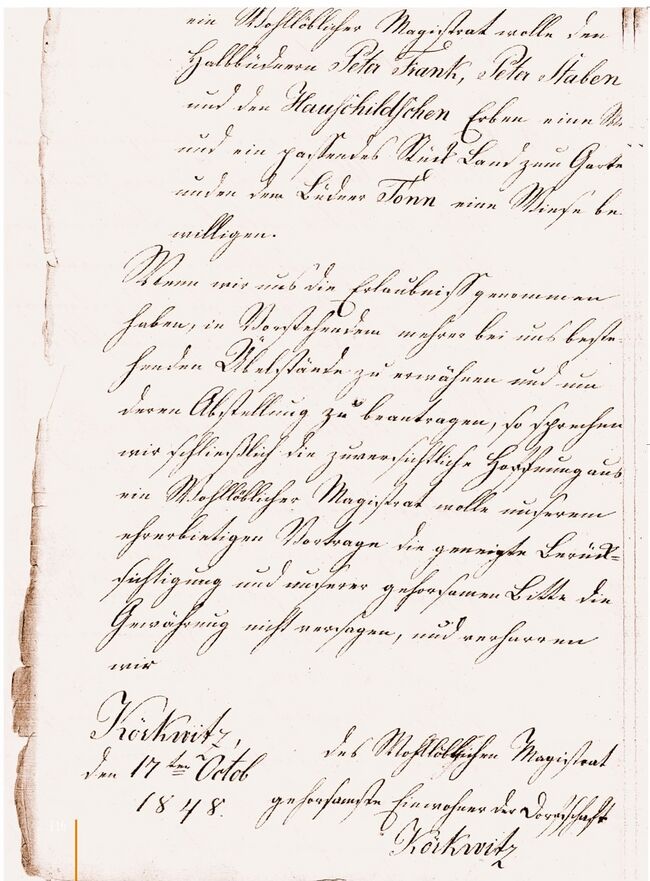 ein Wohllöblicher Magistrat wolle den
Halbbüdnern Peter Frank, Peter Staben
und den Hauschildschen Erben eine
und ein passendes Stück Land zum Garte
und dem Büdner Tonn eine Wiese be
willigen.
Wenn wir uns die Erlaubniss genommen
haben, in Vorstehendem mehrer bei uns beste-
henden Übelstände zu erwähnen und um
deren Abstellung zu beantragen, so sprechen
wir schließlich die zuversichtliche Hoffnung aus
ein Wohllöblicher Magistrat wolle unserem
ehrerbietigen Vortrage die geneigte Berück=
sichtigung und unserer gehorsamen Bitte die
Gewährung nicht versagen, und verharren
wir
Körkwitz,
den 17ten Octob
1848.
des Wohllöblichen Magistrat
gehorsamste Einwohner der Dorfschaft
Körkwitz
116